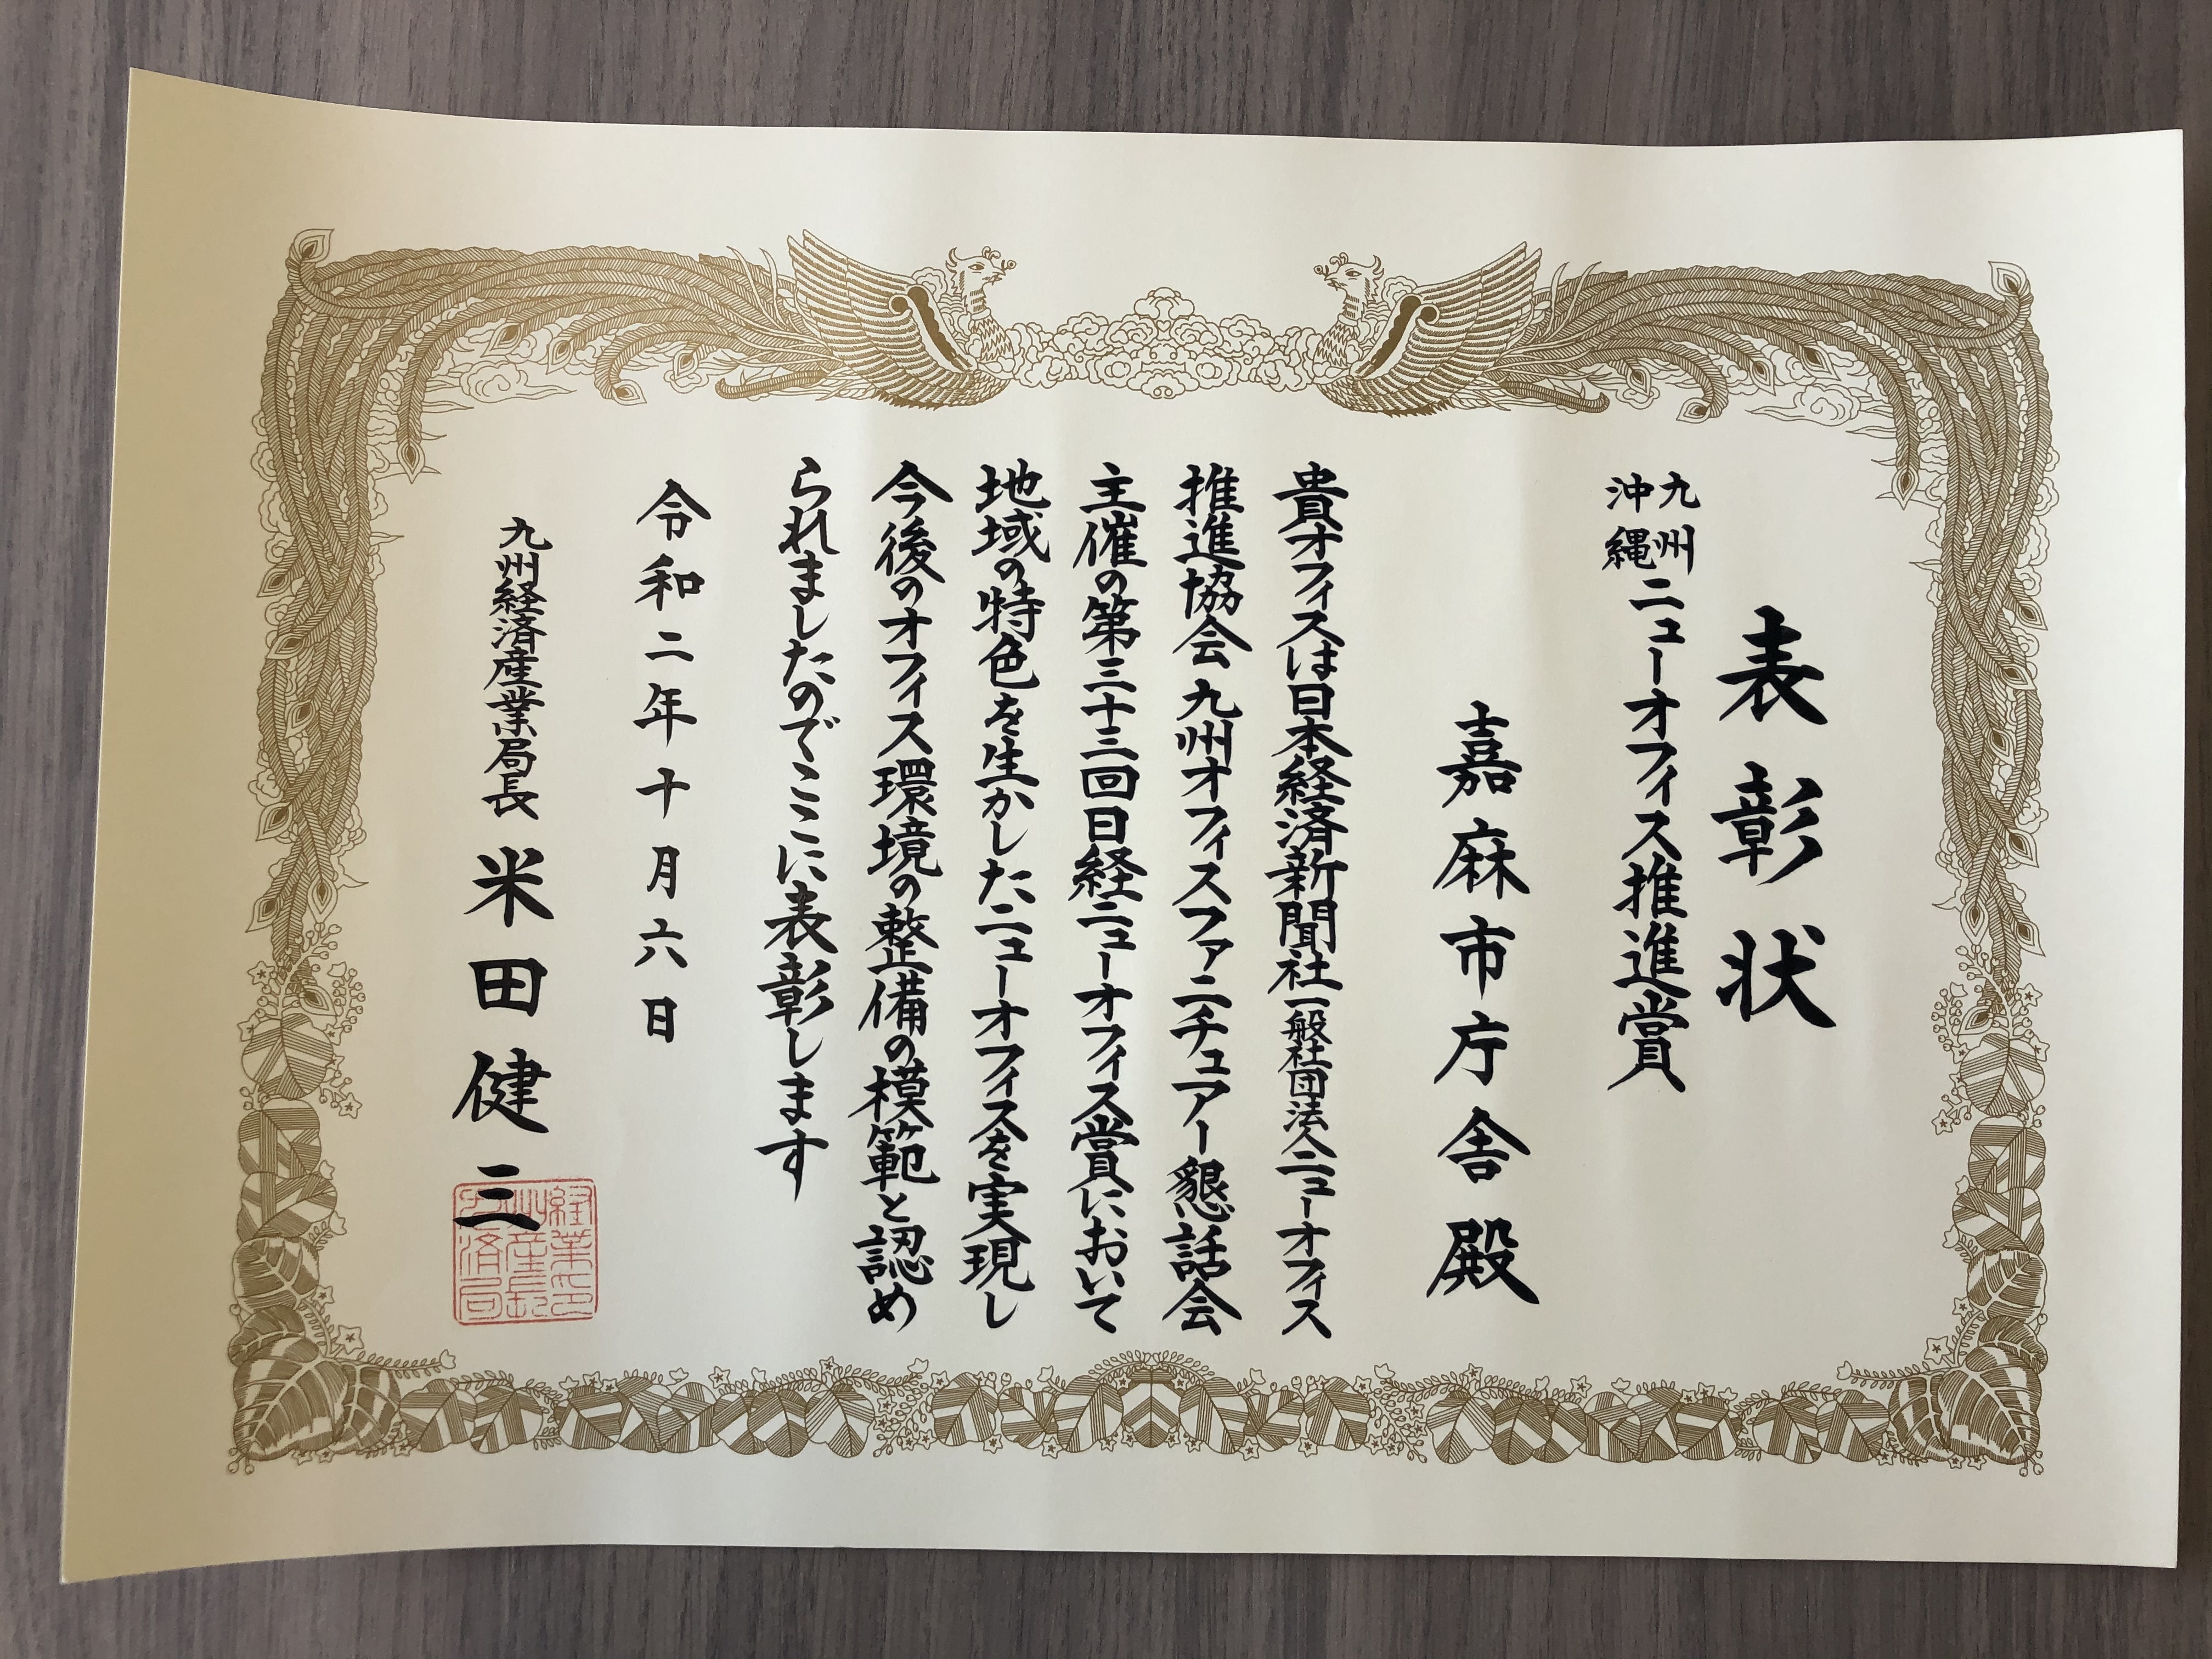 表彰状
九州
沖縄
ニューオフィス推進賞
嘉麻市庁舎殿
貴オフィスは日本経済新聞社一般社団法人ニューオフィス
推進協会九州オフィスファニチュアー懇話会
主催の第三十三回日経ニューオフィス賞において
地域の特色を生かしたニューオフィスを実現し
今後のオフィス環境の整備の模範と認め
られましたのでここに表彰します
令和二年十月六日
九州経済産業局長 米田健三